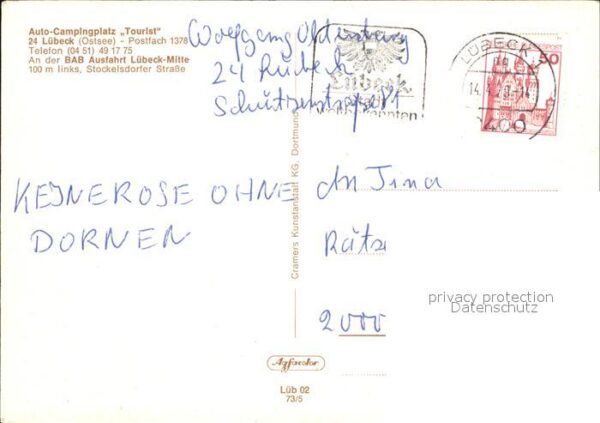 Auto-Campingplatz „Tourist"
24 Lübeck (Ostsee) - Postfach 1378
Telefon (04 51) 49 17 75
An der BAB Ausfahrt Lübeck-Mitte
100 m links, Stockelsdorfer Straße
Wolfgang Oldenburg
24 Lübeck
LÜBECK
Lübeck
50
14.
2400
KEINE ROSE OHNE
DORNEN
Cramers Kunstanstalt KG, Dortmund
An Tina
2000
privacy protection
Datenschutz
Agfacolor
Lüb 02
73/5